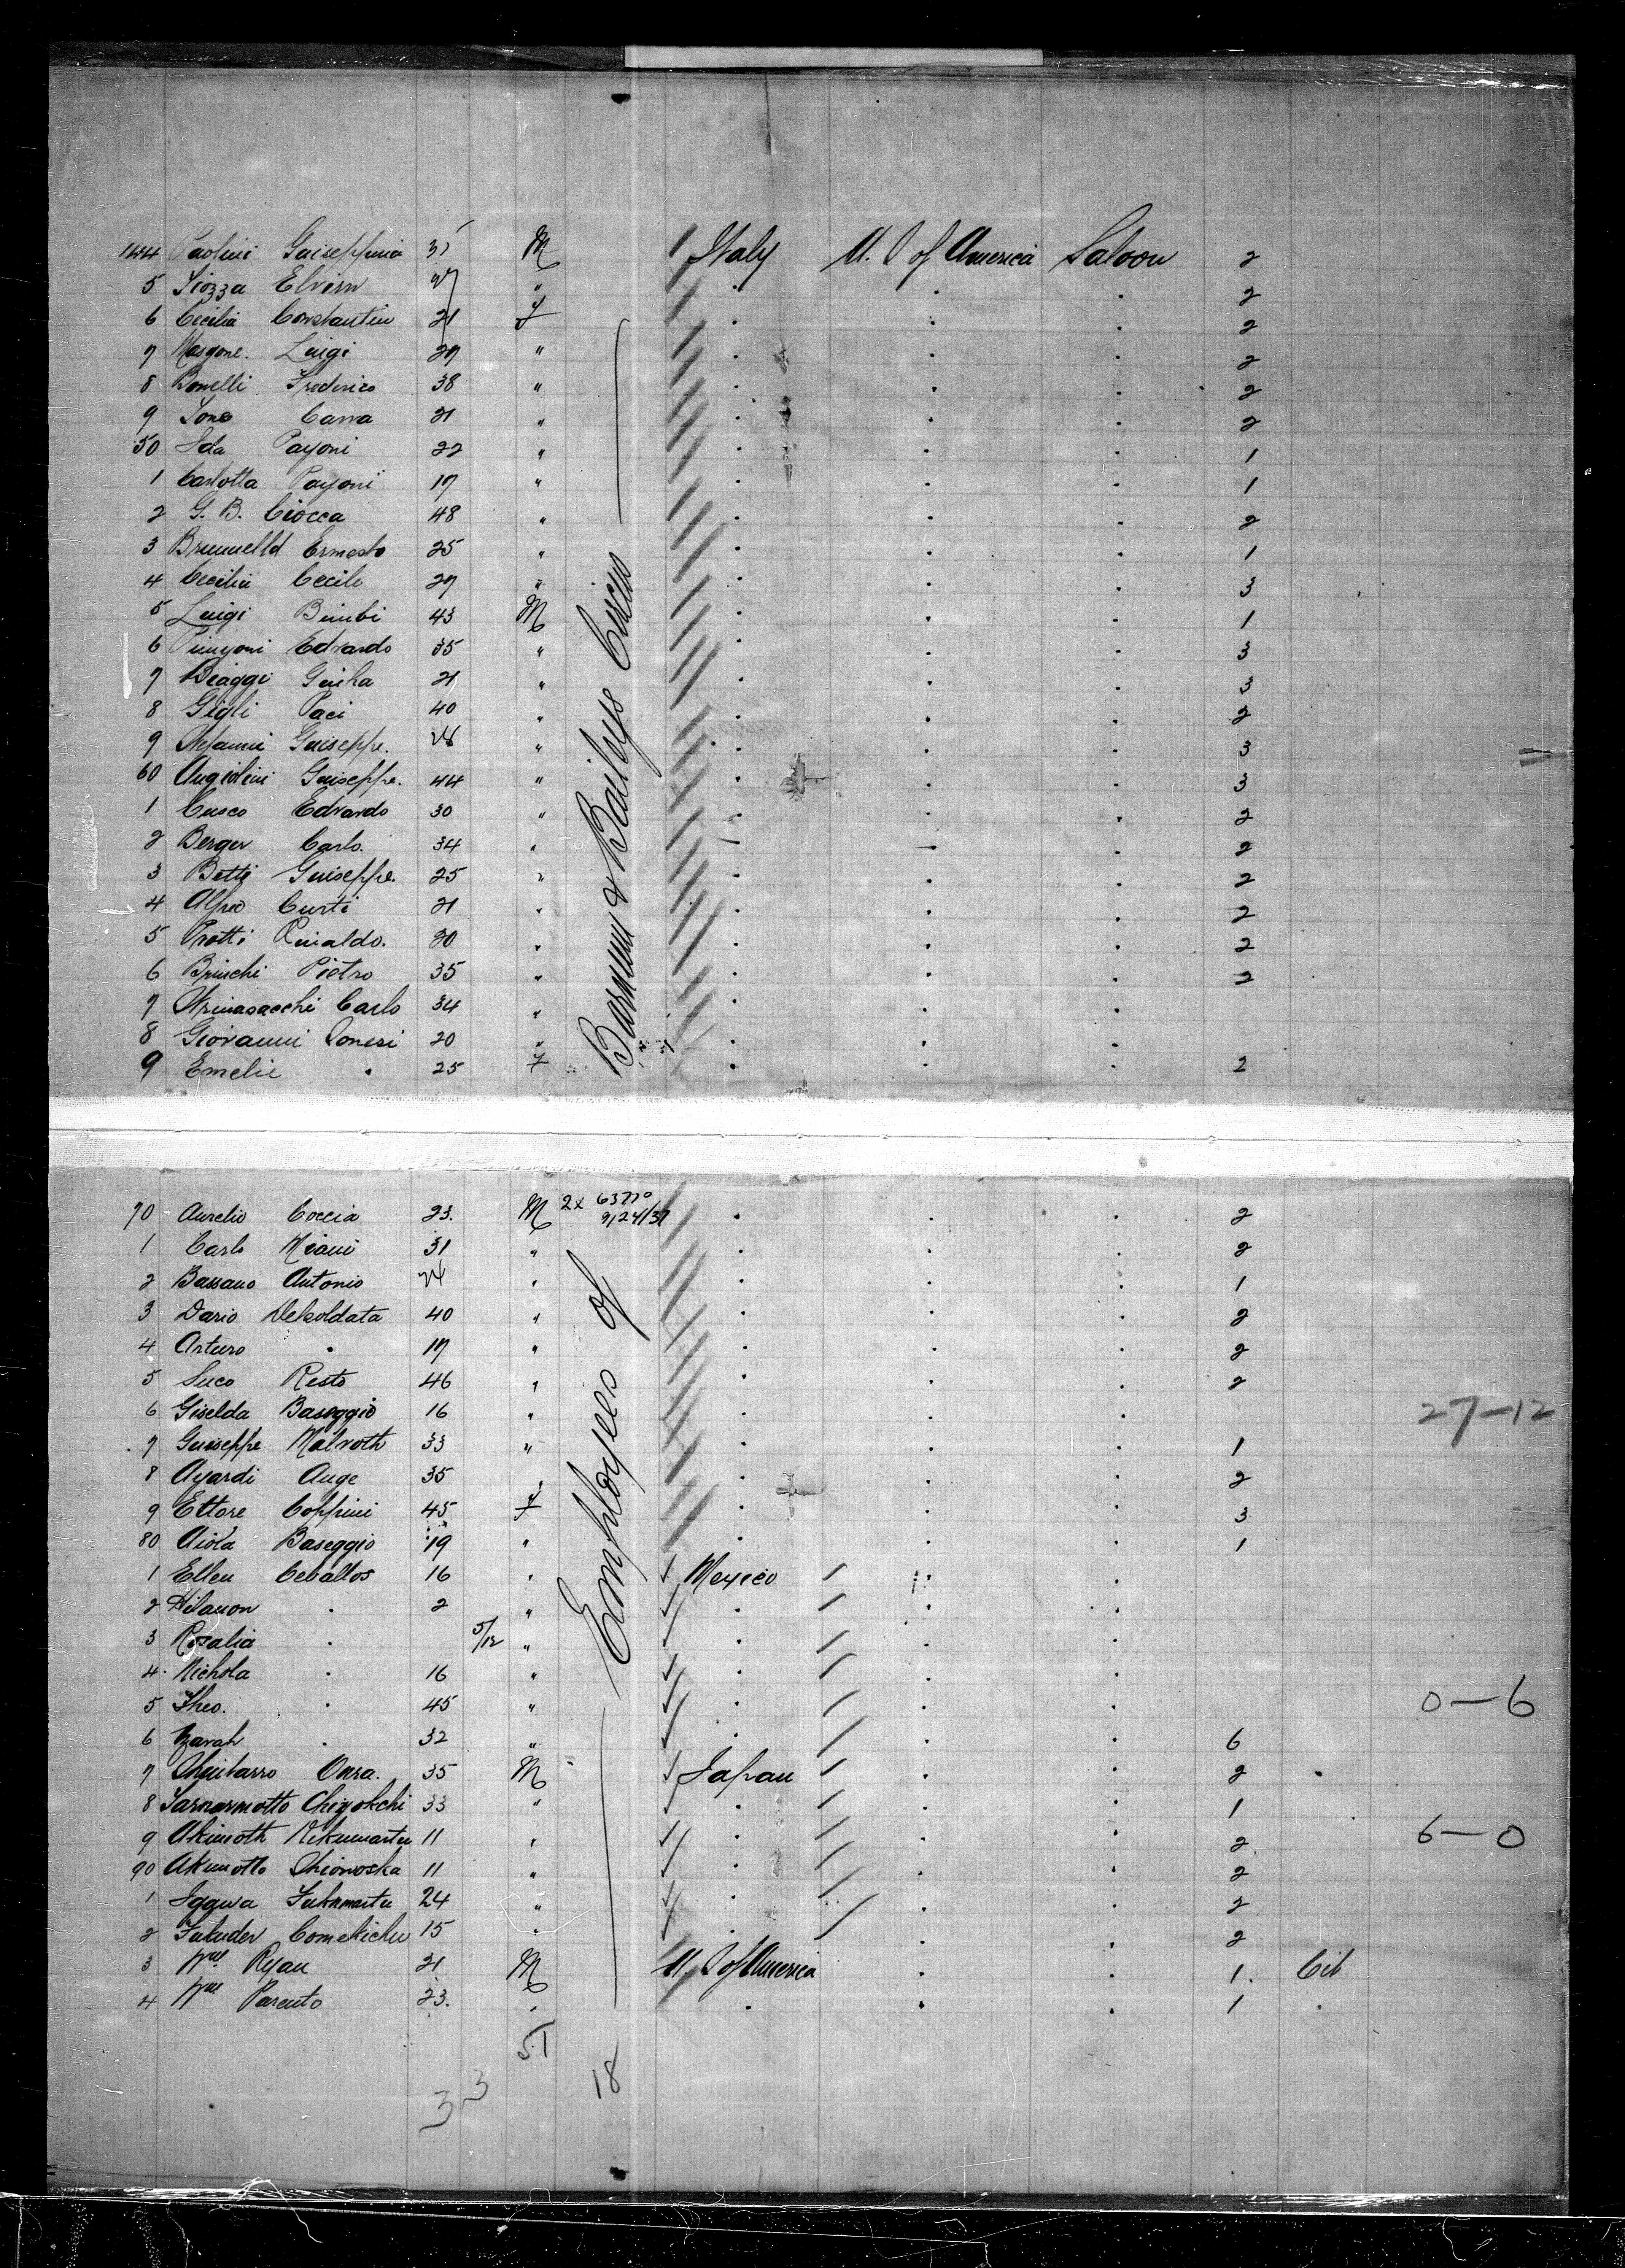 144 Paolini Guiseppinia M Italy U. S of America Saloon 2
5 Elvira " . . . 2
6 Cecilia Constantin 21 F . . . 2
7 Luigi 29 " . . . 2
8 Bonelli Frederico 38 " . . . 2
9 21 " . . . 2
50 Ida Payoni 22 " . . . 1
1 Carlotta Payoni 17 " . . . 1
2 G. B. Ciocca 48 " . . . 2
3 Ernesto 25 " . . . 1
4 Cecilia Cecile 27 " . . . 3
5 Luigi Bimbi 43 M . . . 1
6 Edvardo 35 " . . . 3
7 Biaggi 21 " . . . 3
8 Gigli Paci 40 " . . . 2
9 Guiseppe. " . . . 3
60 Angiolini Guiseppe. 44 " . . . 3
1 Cusco Edvardo 30 " . . . 2
2 Berger Carlo. 34 " . . . 2
3 Betti Guiseppe. 25 " . . . 2
4 Alfred Curti 21 " . . . 2
5 Trotti Rinaldo. 20 " . . . 2
6 Brinchi Pietro 35 " . . . 2
7 Carlo 34 " . . .
8 Giovanni 20 " . . .
9 Emelie . 25 F . . . 2
Employees of Barnum & Baileys Circus
70 Aurelio Coccia 23. M 2x 63770 9/24/37 . . . 2
1 Carlo Miani 31 " . . . 2
2 Bassano Antonio 24 " . . . 1
3 Dario Delsoldata 40 " . . . 2
4 Arturo . 17 " . . . 2
5 Resto 46 " . . . 2
6 Giselda Baseggio 16 " . . . 27-12
7 Guiseppe Malvoth 33 " . . . 1
8 Ayardi Auge 35 " . . . 2
9 Ettore Coppini 45 F . . . 3
80 Aiola Baseggio 19 " . . . 1
1 Ellen Ceballos 16 " Mexico . .
2 Hilauon . 2 " . . .
3 Rosalia . 5/12 " . . .
4 Nichola . 16 " . . .
5 Theo. . 45 " . . . 0-6
6 Zarah . 32 " . . . 6
7 Onra. 35 M Japan . . 2 .
8 Chiyokchi 33 " . . . 1
9 Akimoth 11 " . . . 2 6-0
90 Akimotto Shionoska 11 " . . . 2
1 Iggwa Fukumartu 24 " . . . 2
2 Fukuder Comekichu 15 " . . . 2
3 Wm Ryan 21 M U. S of America . . 1. Cit
4 Wm Parento 23. " . . . 1 .
51
18
33